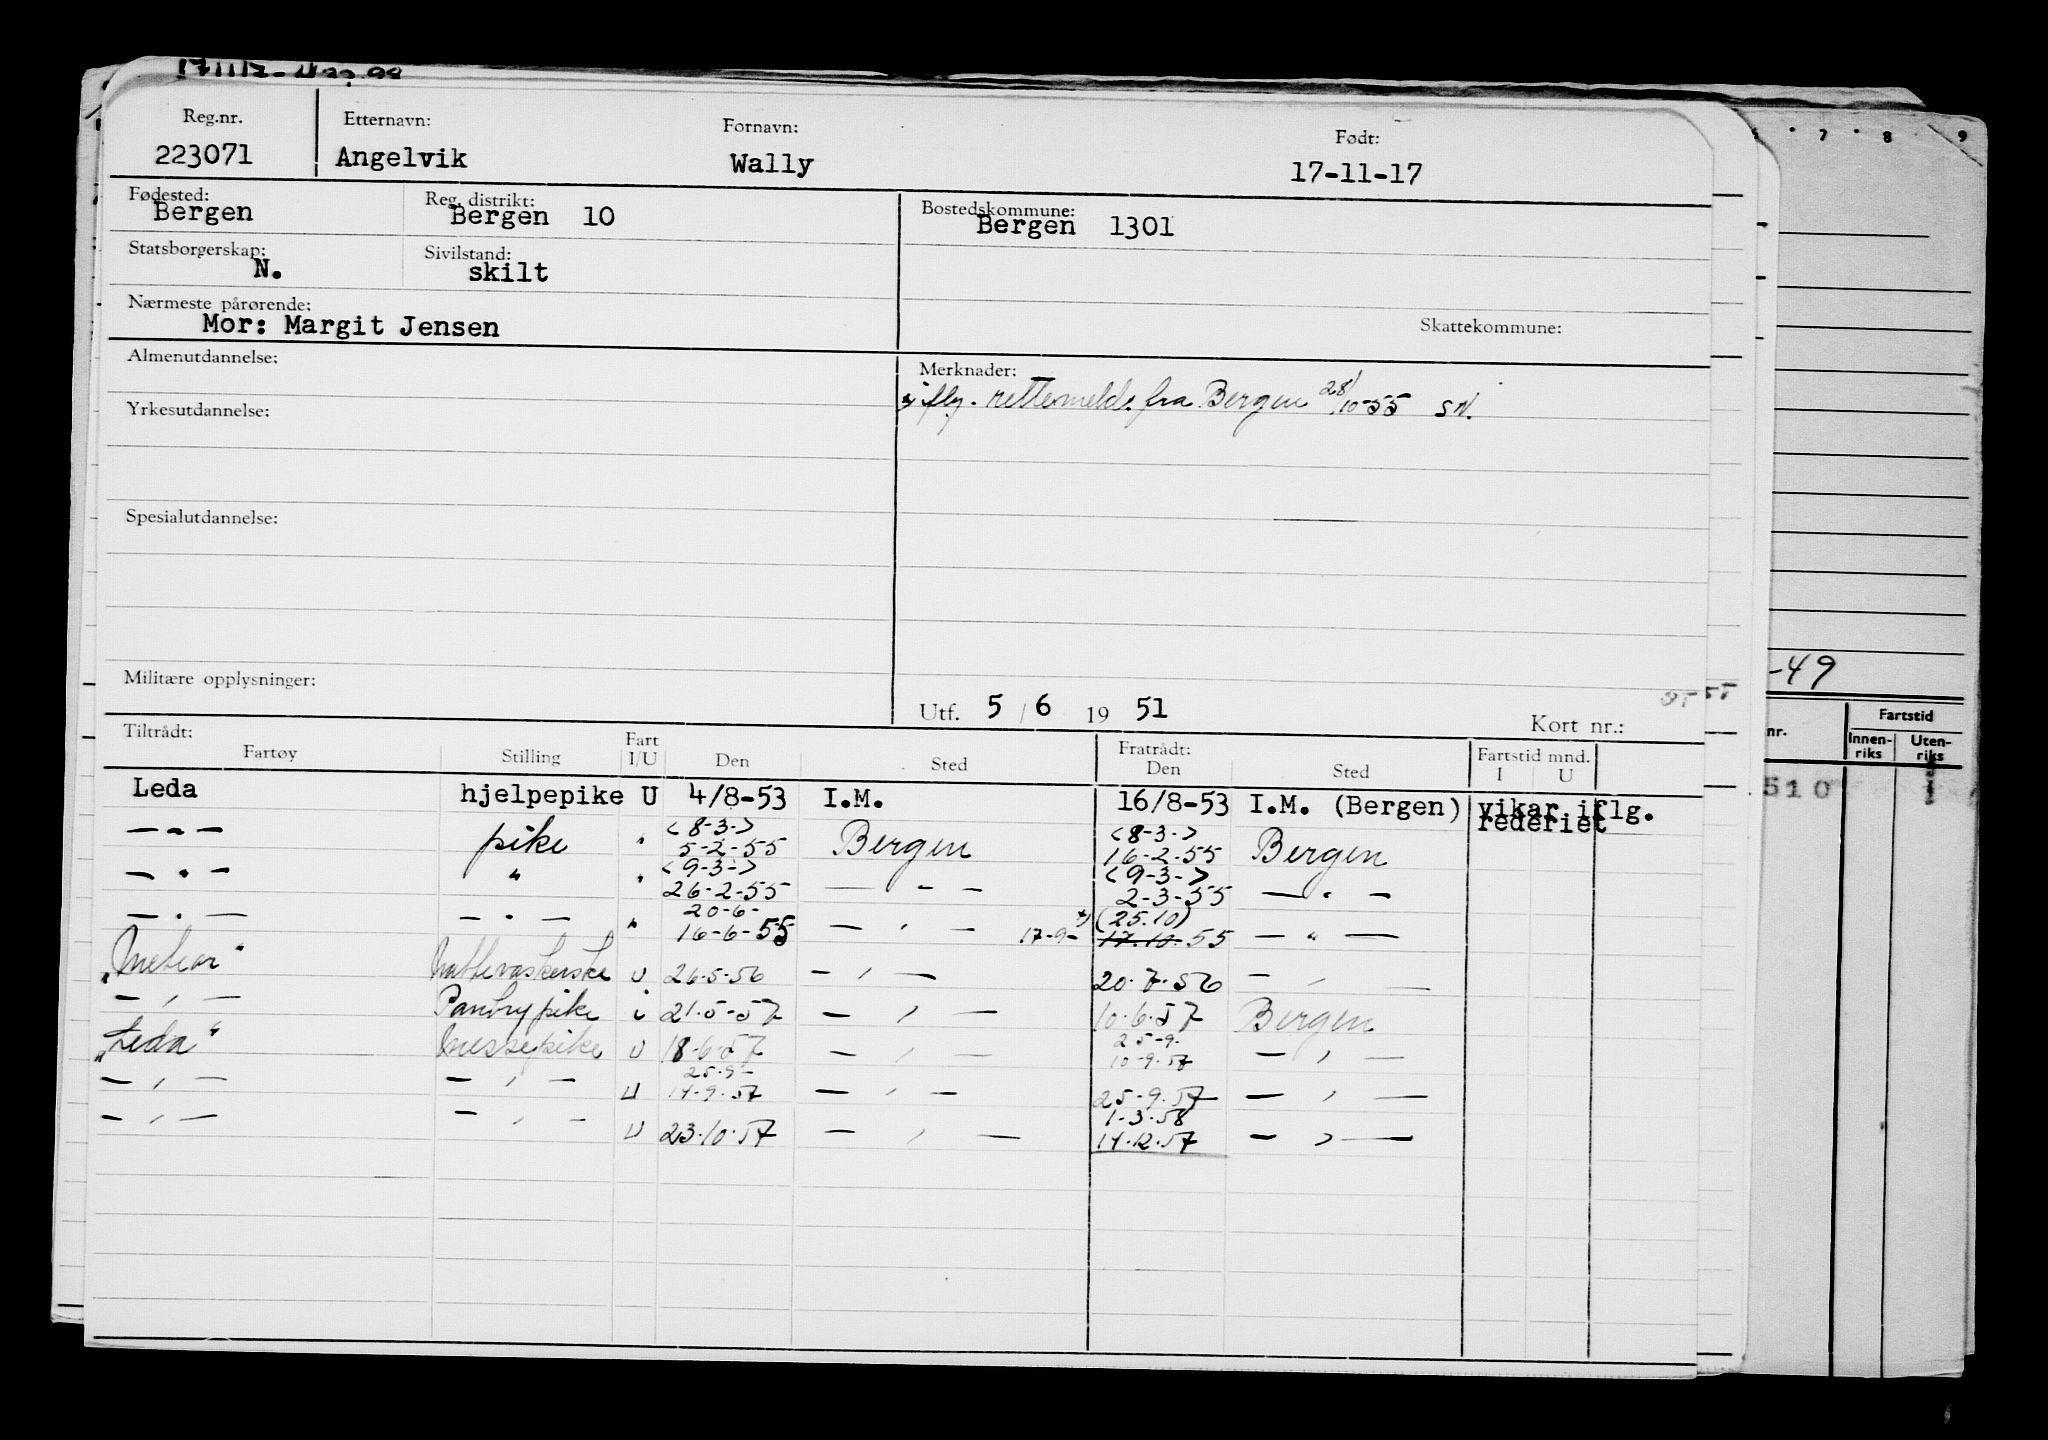 Reg.nr. Etternavn: Fornavn: Født:
223071 Angelvik Wally 17-11-17
Fødested: Reg. distrikt: Bostedskommune:
Bergen Bergen 10 Bergen 1301
Statsborgerskap: Sivilstand:
N. skilt
Nærmeste pårørende:
Mor: Margit Jensen Skattekommune:
Almenutdannelse: Merknader:
iflg. rettemeld. fra Bergen 28/10-55
Yrkesutdannelse:
Spesialutdannelse:
Militære opplysninger:
Utf. 5 / 6 19 51 Kort nr.:
Tiltrådt: Fratrådt:
Fartøy Stilling Fart I/U Den Sted Den Sted Fartstid mnd. I U
Leda hjelpepike U 4/8-53 I.M. 16/8-53 I.M. (Bergen) vikar iflg.
rederiet
<8-3-> <8-3->
— " — pike " 5-2-55 Bergen 16-2-55 Bergen
<9-3-> <9-3->
— " — " " 26-2-55 — " — 2-3-55 — " —
20-6- (25.10)
— " — — " — " 16-6-55 — " — 17-9- 17.10.55 — " —
"Meteor" Nattevaskerske U 26-5-56 — " — 20.7.56 — " —
— " — Pantrypike i 21.5-57 — " — 10.6.57 Bergen
25-9-
"Leda" Messepike U 18-6-57 — " — 10-9.57 — " —
25-9-
— " — — " — U 14-9.57 — " — 25-9.57 — " —
1-3.58
— " — — " — U 23.10.57 — " — 14.12.57 — " —
7 8 9
-49
nr. Fartstid
Innen-
riks Uten-
riks
510